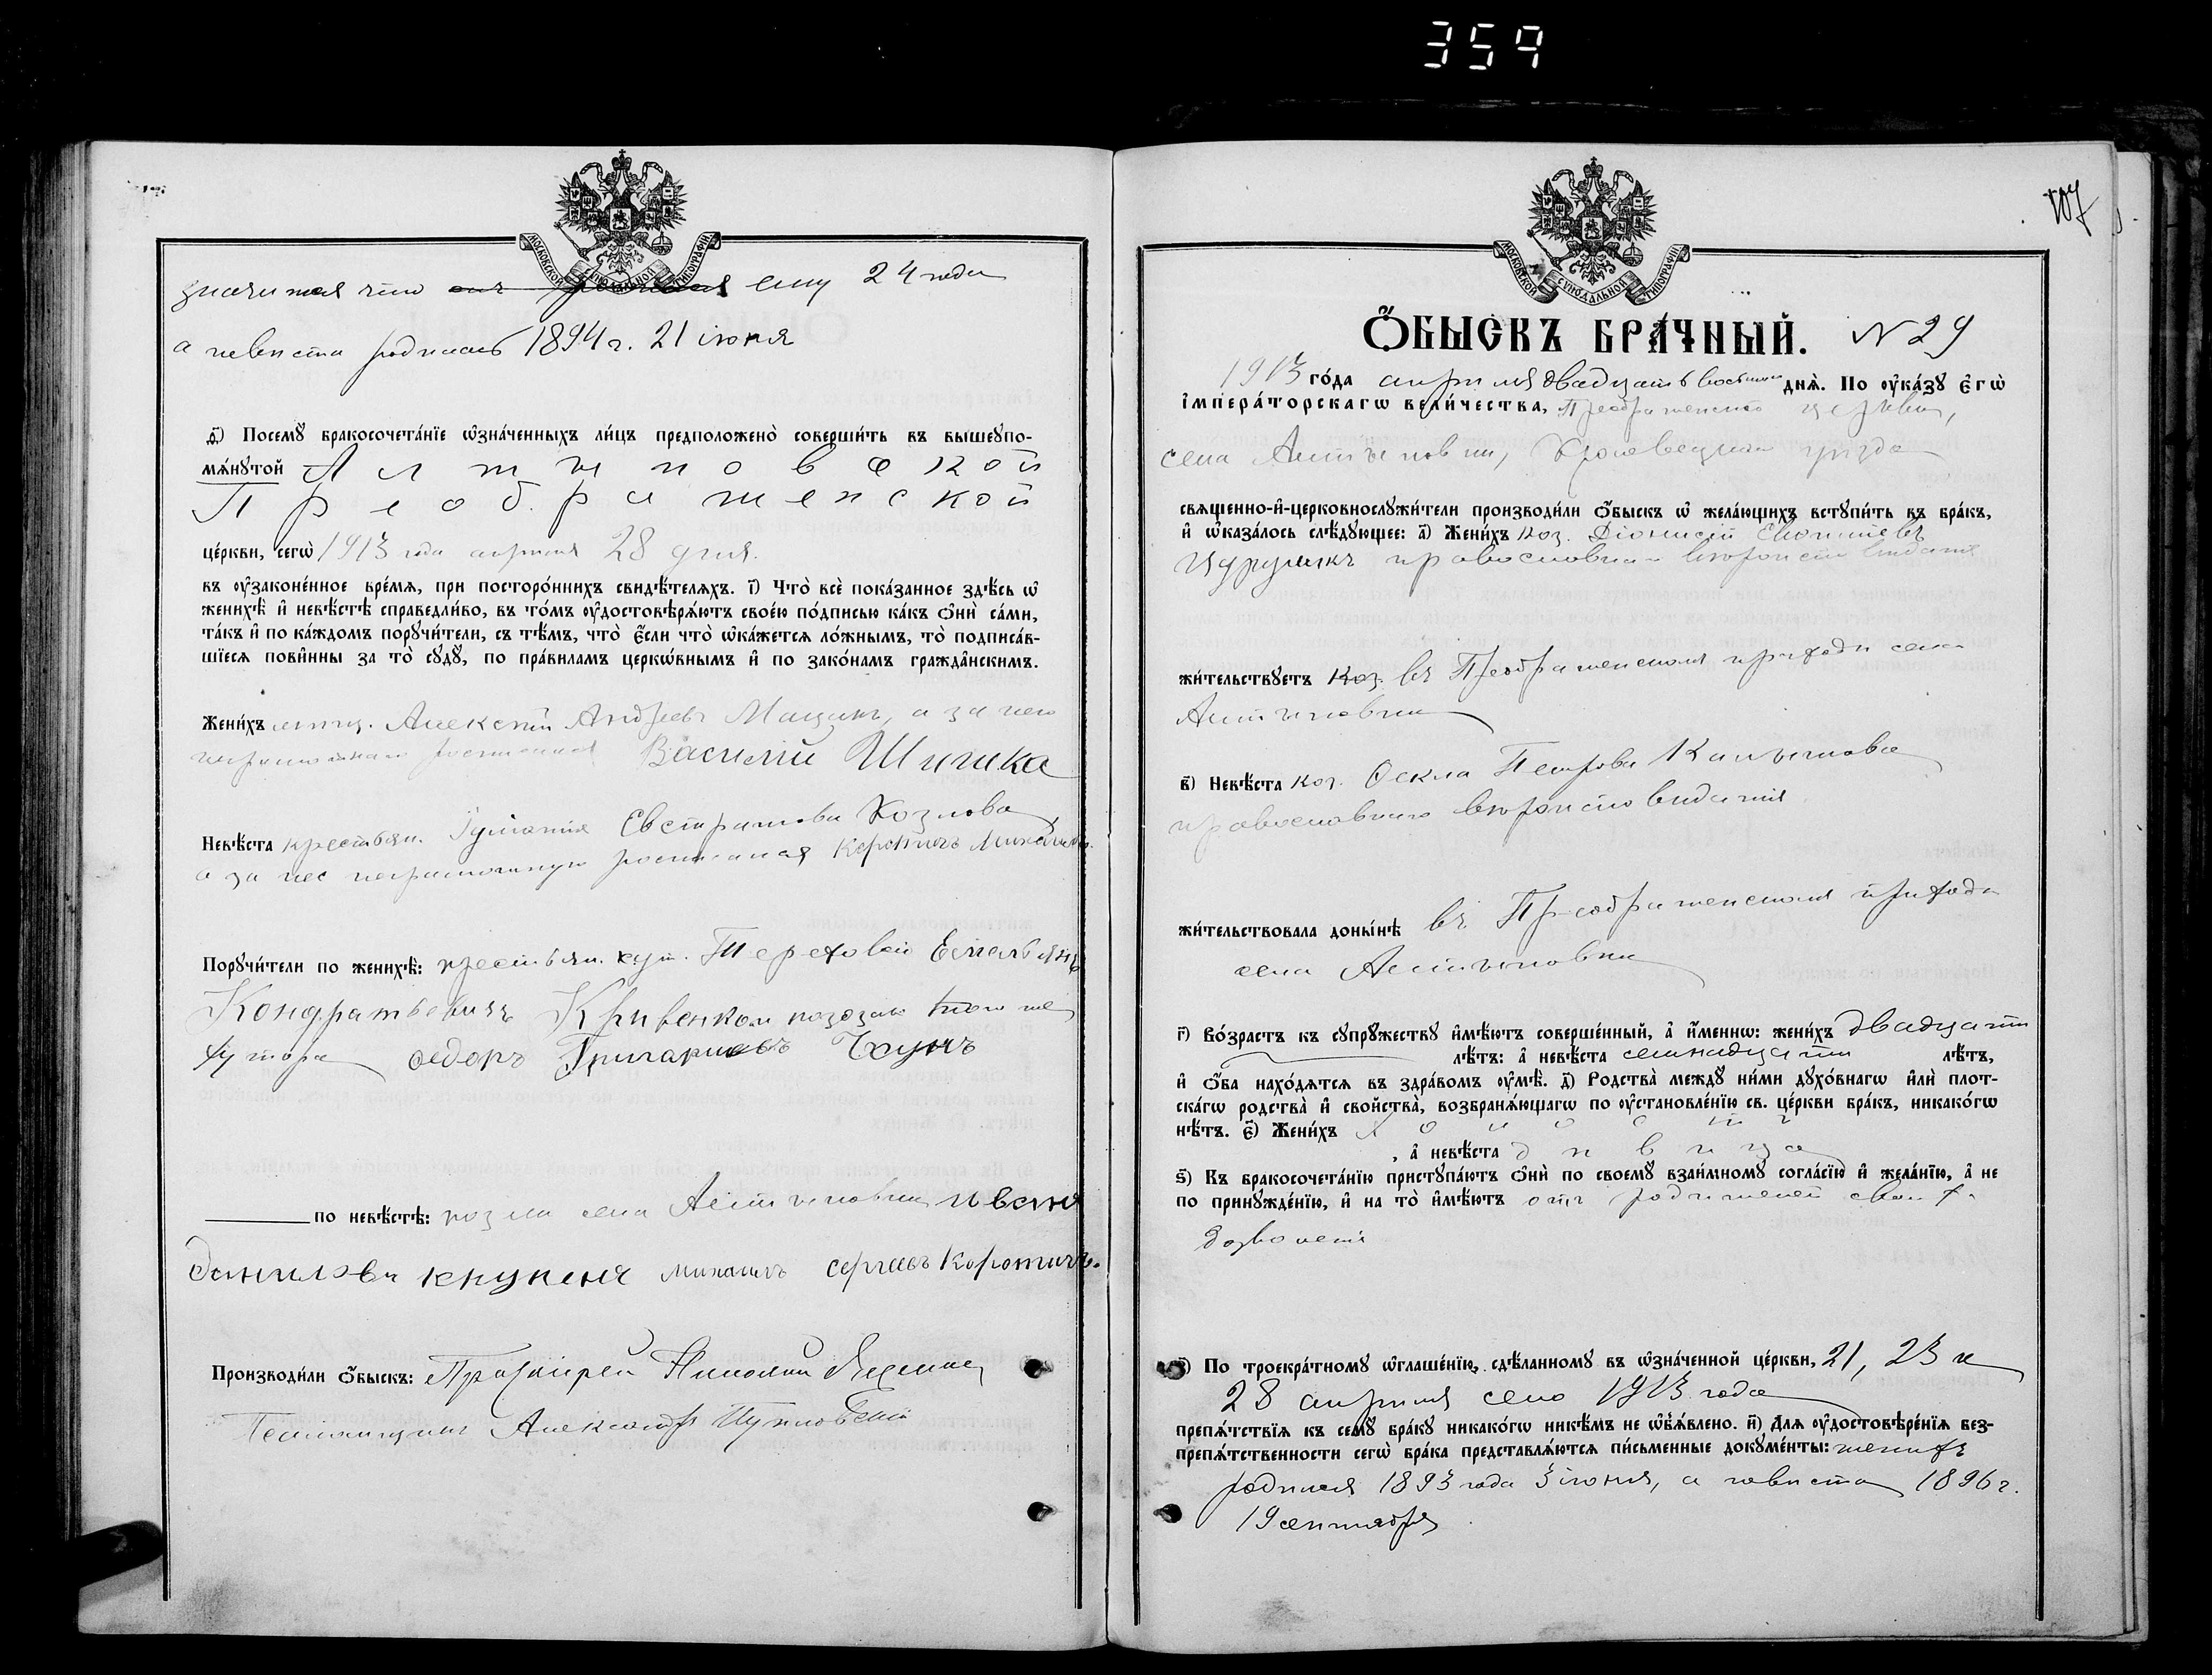 359
МОСКОВСКОЙ СУНОДАЛЬНОЙ ТИПОГРАФІИ
значится что ему 24 года
а невѣста родилась 1894 г. 21 іюня
д҃і) Посемꙋ бракосочета́нїе ѡ҆зна́ченныхъ ли́цъ предположено̀ соверши́ть въ вышеꙋпо-
мѧ́нꙋтой Алтыновской
Преображенской
це́ркви, сегѡ̀ 1913 года апрѣля 28 дня.
въ ᲂу҆законе́нное вре́мѧ, при посторо́ннихъ свидѣ́телѧхъ. і҃) Что̀ всѐ пока́занное здѣ́сь ѡ҆
женихѣ̀ и҆ невѣ́стѣ справедли́во, въ то́мъ ᲂу҆достовѣрѧ́ютъ свое́ю по́дписью ка́къ ѻ҆нѝ са́ми,
та́къ и҆ по ка́ждомъ порꙋчи́тели, съ тѣ́мъ, что̀ є҆́сли что̀ ѡ҆ка́жетсѧ ло́жнымъ, то̀ подписа́в-
шїесѧ пови́нны за то̀ сꙋдꙋ̀, по пра́виламъ церкѡ́внымъ и҆ по зако́намъ гражда́нскимъ.
Жени́хъ Алексѣй Андреевъ Мащикъ, а за него
неграмотнаго росписался Василій Шишка
Невѣ́ста крестьян. Евстратова Козлова
а за нее неграмотную росписался
Порꙋчи́тели по женихѣ̀: крестьян. хут. Терехова Емельянъ
Кондратьевичъ Кривенко и козакъ того же
хутора Федоръ Григорьевъ
по невѣ́стѣ: козаки села Алтыновки иванъ
даниловъ крупеня михаилъ сергеевъ Коротичъ.
Производи́ли ѻ҆́быскъ: Протоіерей Николай
Псаломщикъ Александръ
107
МОСКОВСКОЙ СУНОДАЛЬНОЙ ТИПОГРАФІИ
Ѻ҆́БЫСКЪ БРА́ЧНЫЙ. N 29
1913 го́да апрѣля двадцать восьмого днѧ̀. По ᲂу҆ка́зꙋ є҆гѡ̀
і҆мпера́торскагѡ вели́чества, Преображенской церкви,
села Алтыновки, Кролевецкаго уѣзда
свѧщенно-и҆-церковнослꙋжи́тели производи́ли ѻ҆́быскъ ѡ҆ жела́ющихъ встꙋпи́ть въ бра́къ,
и҆ ѡ҆каза́лось слѣ́дꙋющее: а҃) Жени́хъ коз. Діонисій
православнаго вѣроисповѣданія
жи́тельствꙋетъ въ Преображенскомъ приходѣ села
Алтыновки
в҃) Невѣ́ста коз. Ѳекла Петрова
православнаго вѣроисповѣданія
жи́тельствовала доны́нѣ въ Преображенскомъ приходѣ
села Алтыновки
г҃) Во́зрастъ къ сꙋпрꙋ́жествꙋ и҆мѣ́ютъ соверше́нный, а҆ и҆́меннѡ: жени́хъ двадцати
лѣ́тъ: а҆ невѣ́ста семнадцати лѣ́тъ,
и҆ ѻ҆́ба нахо́дѧтсѧ въ здра́вомъ ᲂу҆мѣ̀. д҃) Родства̀ междꙋ̀ ни́ми дꙋхо́внагѡ и҆лѝ плот-
ска́гѡ родства̀ и҆ сво́йства̀, возбранѧ́ющагѡ по ᲂу҆становле́нїю св. це́ркви бра́къ, никако́гѡ
нѣ́тъ. є҃) Жени́хъ холостъ
, а҆ невѣ́ста дѣвица
ѕ҃) Къ бракосочета́нїю пристꙋпа́ютъ ѻ҆нѝ по своемꙋ̀ взаи́мномꙋ согла́сїю и҆ жела́нїю, а҆ не
по принꙋжде́нїю, и҆ на то̀ и҆мѣ́ютъ отъ родителей своихъ
дозволеніе
з҃) По троекра́тномꙋ ѡ҆глаше́нїю, сдѣ́ланномꙋ въ ѡ҆зна́ченной це́ркви, 21, 23 и
28 апрѣля сего 1913 года
препѧ́тствїѧ къ семꙋ̀ бра́кꙋ никако́гѡ никѣ́мъ не ѡ҆б̾ѧ́влено. и҃) Для ᲂу҆достовѣре́нїѧ без-
препѧ́тственности сегѡ̀ бра́ка представлѧ́ютсѧ пи́сьменные докꙋме́нты: женихъ
родился 1893 года 3 іюня, а невѣста 1896 г.
19 сентября